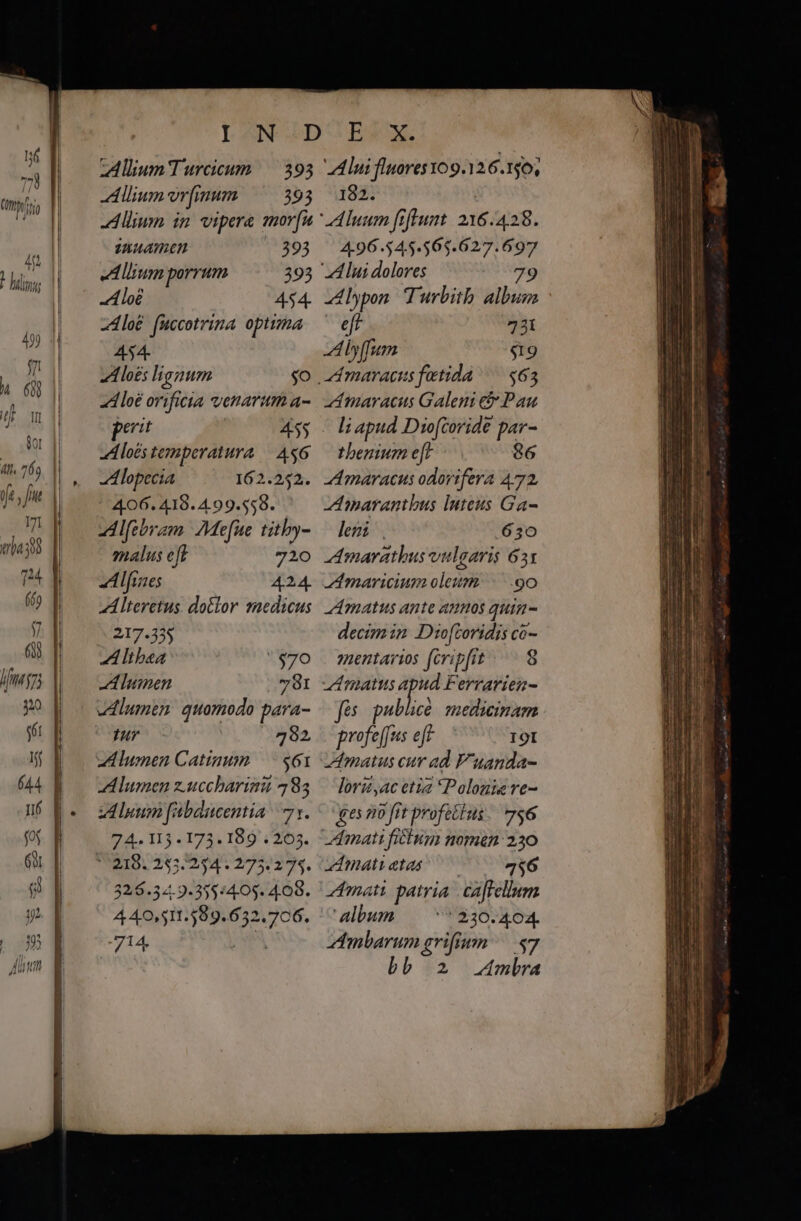 INDEX.
Allium Turcicum 393
Allium vrſinum 393
Allium in viperæ morſu
iuuamen 393
Allium porrum 393
Aloë 454
Aloë ſuccotrina optima
454
Aloës lignum 50
Aloë orificia venarum a-
perit 455
Aloës temperatura 456
Alopecia 162.252.
406.418.499.558.
Alſebram Meſue tithy-
malus eſt 720
Alſines 424
Alteretus doctor medicus
217.335
Althæa 570
Alumen 781
Alumen quomodo para-
tur 782
Alumen Catinum 561
Alumen zuccharinū 783
Aluum ſubducentia 71.
74.115.173.189.203.
218.253.254.273.275.
326.349.355.405.408.
440.511.589.632.706.
714
Alui fluores 109.126.150,
182.
Aluum ſiſtunt 216.428.
496.545.565.627.697
Alui dolores 79
Alypon Turbith album
eſt 731
Alyſſum 519
Amaracus fœtida 563
Amaracus Galeni & Pau
li apud Dioſcoridē par-
thenium eſt 86
Amaracus odorifera 472
Amaranthus luteus Ga-
leni 630
Amarāthus vulgaris 631
Amaricium oleum 90
Amatus ante annos quin-
decim in Dioſcoridis cō-
mentarios ſcripſit 8
Amatus apud Ferrarien-
ſes publicè medicinam
profeſſus eſt 191
Amatus cur ad Vuanda-
lorū, ac etiā Poloniæ re-
ges nō ſit profectus 756
Amati fictum nomen 230
Amati ætas 756
Amati patria caſtellum
album 230.404
Ambarum griſium 57
bb 2 Ambra
136
778
452
499
571
688
801
769
171
724
669
57
688
320
561
644
116
505
631
392
393
Alium